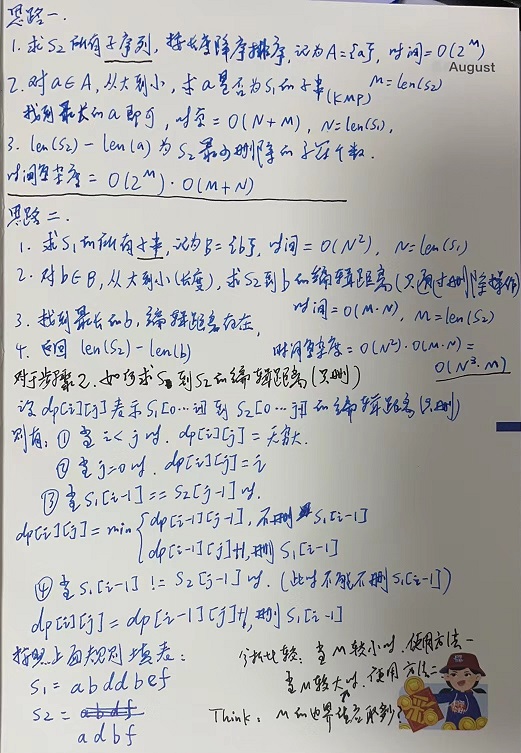 思路一.
1. 求S2所有子序列, 按长度降序排序, 记为A={a}, 时间=O(2^M)
August
M=len(S2)
2. 对a∈A, 从大到小, 求a是否为S1的子串(KMP)
找到最长的a即可, 时间=O(N+M), N=len(S1),
3. len(S2)-len(a)为S2最少删除的字符个数.
时间复杂度=O(2^M)·O(M+N)
思路二.
1. 求S1的所有子串, 记为B={b}, 时间=O(N²), N=len(S1)
2. 对b∈B, 从大到小(长度), 求S2到b的编辑距离(只通过删除操作)
时间=O(M·N), M=len(S2)
3. 找到最长的b, 编辑距离存在,
4. 返回 len(S2)-len(b) 时间复杂度=O(N²)·O(M·N)=
O(N³·M)
对于步骤2. 如何求S1到S2的编辑距离(只删)
设dp[i][j]表示S1[0…i]到S2[0…j]的编辑距离(只删)
则有: ①当i<j时. dp[i][j]=无穷大.
②当j=0时. dp[i][j]=i
③当S1[i-1]==S2[j-1]时.
dp[i][j]=min{dp[i-1][j-1], 不删S1[i-1]
dp[i-1][j]+1, 删S1[i-1]
④当S1[i-1]!=S2[j-1]时. (此时不能不删S1[i-1])
dp[i][j]=dp[i-1][j]+1, 删S1[i-1]
按照上面规则填表:
S1=abddbef
S2=abdf
adbf
分析比较: 当M较小时, 使用方法一
当M较大时, 使用方法二
Think: M的边界值应取到